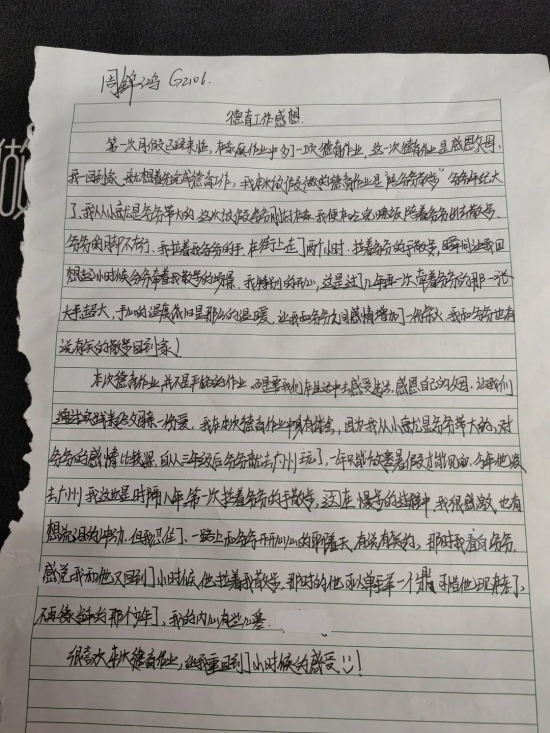 周锦鸿 G2106.
德育工作感想.
第一次月假已经来临,在家庭作业中多了一项德育作业,这一次德育作业是感恩父母.
我一回到家,就想着先完成德育工作,我本次放假做的德育作业是"陪爷爷散步"爷爷年纪大
了,我从小就是爷爷带大的,这次放假爷爷刚好在家,我便在吃完晚饭陪着爷爷出去散步,
爷爷的脚不方便,我拉着我爷爷的手,在街上走了两个小时.拉着爷爷的手散步,瞬间让我回
想起小时候爷爷牵着我散步的场景.我特别的开心,这是过了几年再一次牵着爷爷的那一张
大手,超大,手心的温度依旧是那么的温暖,让我和爷爷之间感情增加了一传,我和爷爷也有
说有笑的散步回到家!
本次德育作业,并不是平白的作业,而是要我们在生活中去感受生活.感恩自己的父母,让我们
通过实践来给父母一份爱,我在本次德育作业中身有体会,因为我从小就是爷爷带大的,对
爷爷的感情比较深,自从三年级后爷爷就去广州玩了,一年只能放寒暑假才能见面,今年他没
去广州,我这也是时隔八年第一次拉着爷爷的手散步,这在慢步的过程中,我很感激,也有
想流泪的冲动,但我忍住了.一路上和爷爷开开心心的聊着天,有说有笑的,那时我看向爷爷,
感觉我和他又回到了小时候,他拉着我散步,那时的他可以单手举一个鼎,可惜他现在老了,
不再像当年的那个少年了,我的内心有些心塞.
很喜欢本次德育作业,让我重回到了小时候的感受!